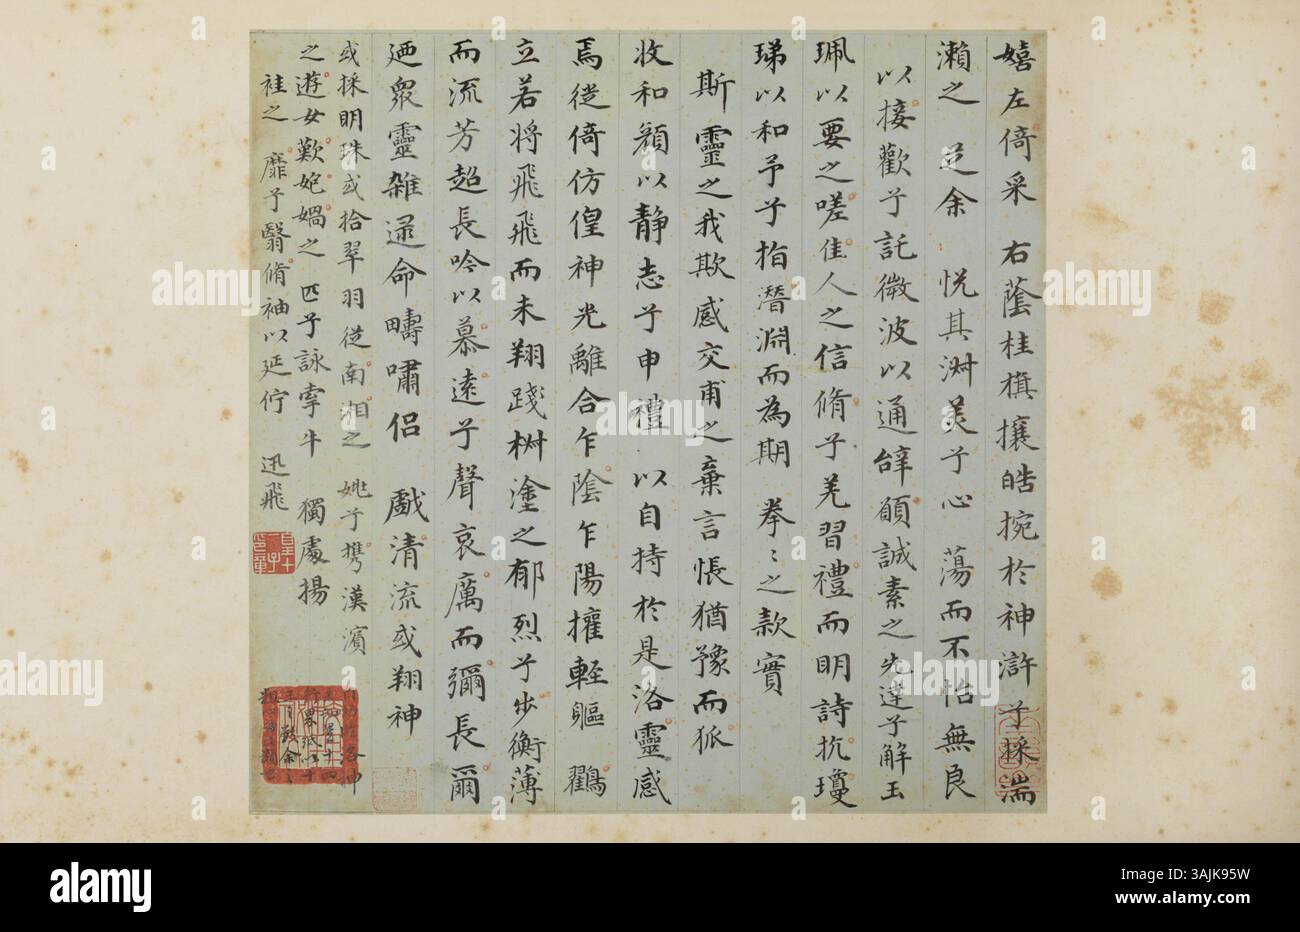 嬉左倚采 右蔭桂旗攘皓捥於神滸兮採湍
瀨之 芝余 悅其淑美兮心 蕩而不怡無良
以接歡兮託微波以通辝願誠素之先達兮解玉
珮以要之嗟佳人之信脩兮羌習禮而明詩抗瓊
珶以和予兮指潛淵而為期 拳〻之款實
斯靈之我欺感交甫之棄言悵猶豫而狐
收和顏以静志兮申禮 以自持於是洛靈感
焉徙倚仿偟神光離合乍陰乍陽擢輕軀 鸖
立若将飛飛而未翔踐椒塗之郁烈兮步衡薄
而流芳超長吟以慕遠兮聲哀厲而彌長爾
迺衆靈雜遝命疇嘯侶 戲清流或翔神
或採明珠或拾翠羽從南湘之 姚兮携漢濱
之遊女歎媧之 匹兮詠牽牛 獨處揚
袿之 靡兮翳脩袖以延佇 迅飛
alamy
Image ID: 3AJK95W
www.alamy.com